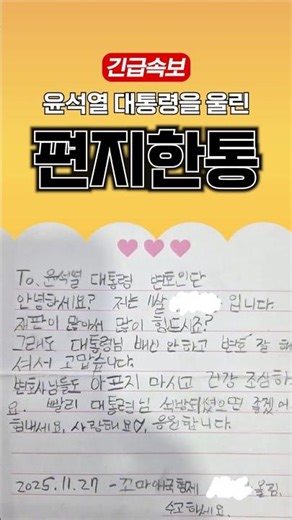 긴급속보
윤석열 대통령을 울린
편지한통
To. 윤석열 대통령 변호인단
안녕하세요? 저는 11살 입니다.
재판이 많아서 많이 힘드시죠?
그래도 대통령님 배신 안하고 변호 잘 해
셔서 고맙습니다.
변호사님들도 아프지 마시고 건강 조심하세
요. 빨리 대통령님 석방되셨으면 좋겠어
힘내세요, 사랑해요♡, 응원합니다.
2025.11.27 - 꼬마애국형제 올림.
수고하세요.